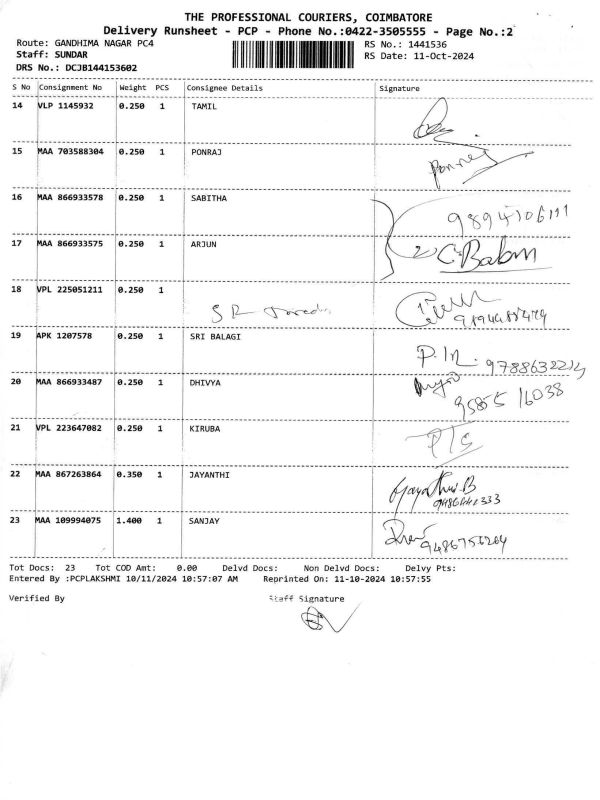 THE PROFESSIONAL COURIERS, COIMBATORE
Delivery Runsheet - PCP - Phone No.:0422-3505555 - Page No.:2
Route: GANDHIMA NAGAR PC4
RS No.: 1441536
Staff: SUNDAR
RS Date: 11-Oct-2024
DRS No.: DCJB144153602
S No Consignment No Weight PCS Consignee Details Signature
14 VLP 1145932 0.250 1 TAMIL
15 MAA 703588304 0.250 1 PONRAJ
Ponraj
16 MAA 866933578 0.250 1 SABITHA
9894706111
17 MAA 866933575 0.250 1 ARJUN
2 C. Babm
18 VPL 225051211 0.250 1
S R
19 APK 1207578 0.250 1 SRI BALAGI
P. In. 9788632214
20 MAA 866933487 0.250 1 DHIVYA
95855 16038
21 VPL 223647082 0.250 1 KIRUBA
P/S
22 MAA 867263864 0.350 1 JAYANTHI
23 MAA 109994075 1.400 1 SANJAY
Tot Docs: 23 Tot COD Amt: 0.00 Delvd Docs: Non Delvd Docs: Delvy Pts:
Entered By :PCPLAKSHMI 10/11/2024 10:57:07 AM Reprinted On: 11-10-2024 10:57:55
Verified By Staff Signature